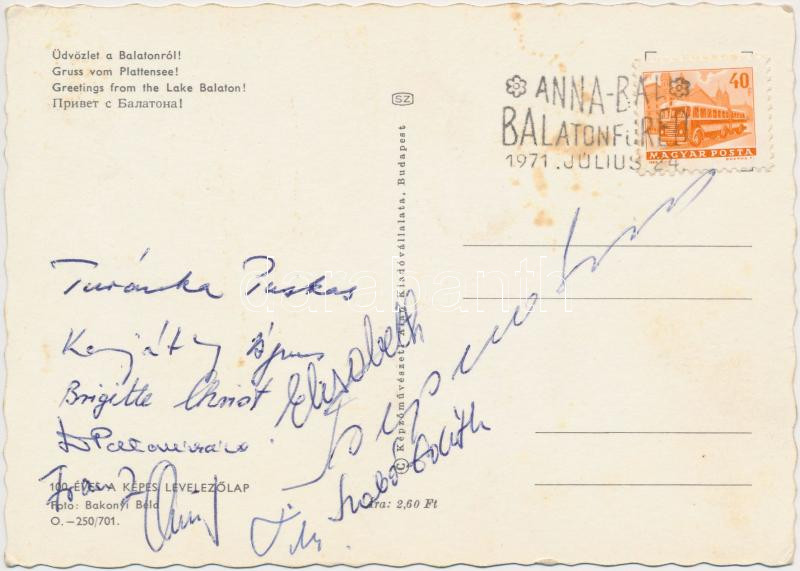 Üdvözlet a Balatonról!
Gruss vom Plattensee!
Greetings from the Lake Balaton!
Привет с Балатона!
SZ
ANNA-BÁL
BALATONFÜRED
1971. JÚLIUS 24
40
MAGYAR POSTA
© Képzőművészeti Alap Kiadóvállalata, Budapest
darabanth
Puskas
Brigitte Christ
Elisabeth
Szabó Edith
Franz
100 ÉVES A KÉPES LEVELEZŐLAP
Foto: Bakonyi Béla
O.—250/701.
Ára: 2,60 Ft